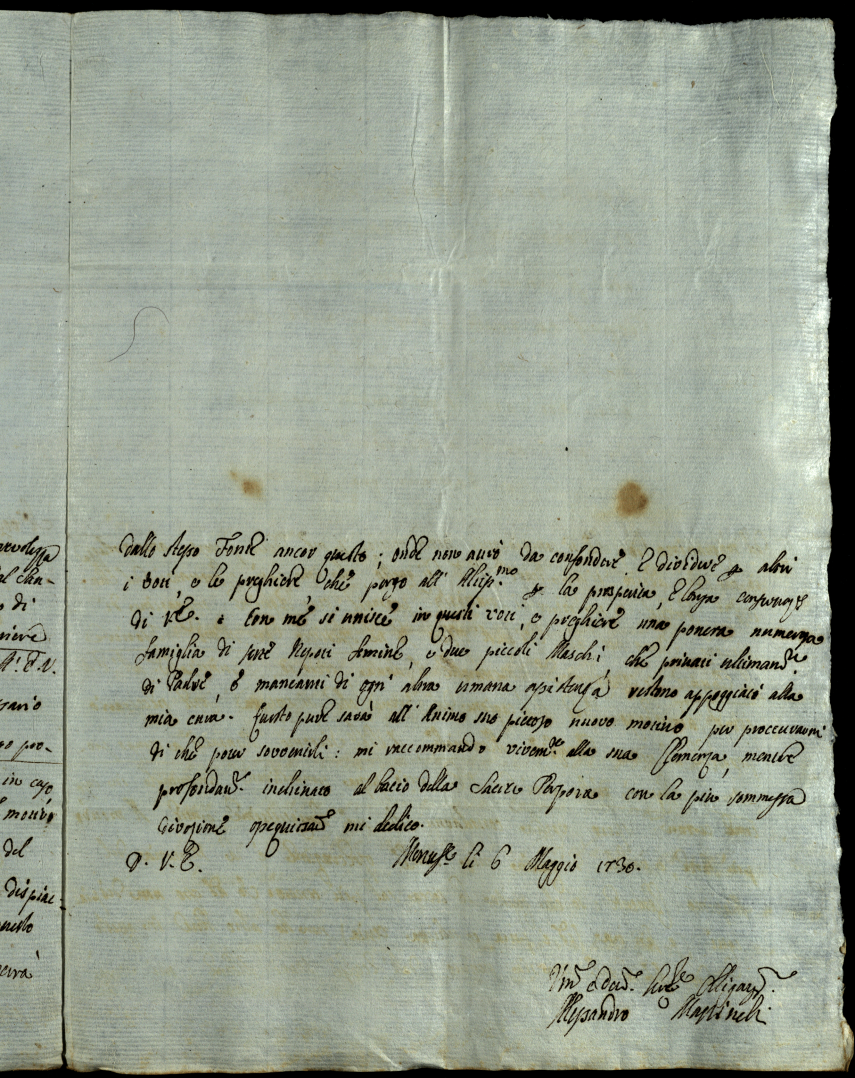 dallo stesso Fonte ancor questo; onde non avrò da confondere, e dividere p altri
i voti, e le preghiere che porgo all' Altiss.mo p la prosperità, e lunga
di V.E. e con me si unisce in questi voti, e preghiere una povera numerosa
famiglia di sette Nepoti femine, e due piccoli Maschi, che privati ultimam.te
di Padre, e mancanti di ogni altra umana assistenza restono appoggiati alla
mia cura. Questo pure sarà all' Animo suo pietoso nuovo motivo per proccurarmi
di che poter sovvenirli: mi raccommando vivam.te alla sua Clemenza, mentre
profondam.te inchinato al bacio della Sacra Porpora con la più sommessa
divozione ossequiosam.te mi dedico.
D. V. E. li 6 Maggio 1730.
Um.o e dev.o Ser.e Obligat.o
Alessandro
nevolezza
di
niere
in caso
motivo
del
dispiac-
uesto